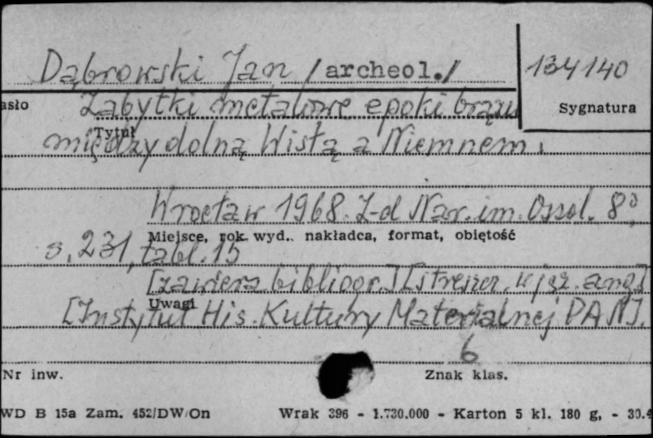 Dąbrowski Jan /archeol./
134140
asło
Zabytki metalowe epoki brązu
Sygnatura
Tytuł
między dolną Wisłą a Niemnem.
Wrocław 1968. Z-d Nar. im. Ossol. 8°,
Miejsce, rok wyd., nakładca, format, objętość
s. 231, tabl. 15
[zawiera bibliogr.] [streszcz. w jęz. ang.]
Uwagi
[Instytut His. Kultury Materialnej PAN].
6
Nr inw.
Znak klas.
WD B 15a Zam. 452/DW/On
Wrak 396 - 1.730.000 - Karton 5 kl. 180 g, - 30.4